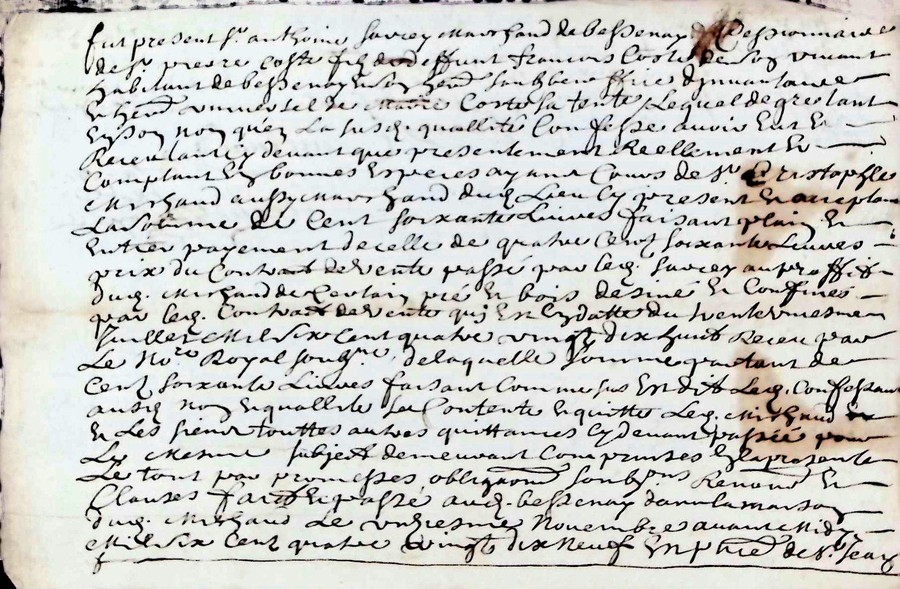 fut present Sr. anthoine Savrey Marchand de bessenay Cessionnaire
de Sr. pierre Coste fils de deffunt francois Coste de Son vivant
habitant de bessenay Son herit. Soubz beneffice dinvantaire
Et herit. universel de Coste Sa tente Lequel de gre tant
En Son Nom qu'en La Susd. quallité Confesse avoir Eut Et
Receu tant Cy devant que presentement Reellement Et
Comptant En bonnes Especes ayant Cours de Sr. Cristophle
Mirchaud aussy Marchand dud. Lieu Cy present Et acceptant
La Somme de Cent Soixante Livres faisant plain Et
Entier payement de celle de quatre Cent Soixante Livres
prix du Contract de vente passé par led. Savrey au proffit
dud. Mirchaud de Certain pré Et bois desiné Et Confiné
par led. Contract de vente quj Est Cy datte du trente uniesme
Juillet Mil Six Cent quatre vingt dix huit Receu par
Le Nore. Royal Sougne. de laquelle Somme partant de
Cent Soixante Livres faisant Comme Sus Est dit Led. Confessant
ausd. Noms Et quallité Sa Contente Et quitte Led. Mirchaud
Et Les Siens touttes autres quittances Cy devant passée pour
Le Mesme Subject demeurant Comprinses En la presente
Le tout par promesses obligaons Soubons Renons Et
Clauses fait Et passé aud. bessenay dans la maison
dud. Mirchaud Le unziesme Novembre avant Midy
Mil Six Cent quatre vingt dix Neuf En pnce de Sr. Jean